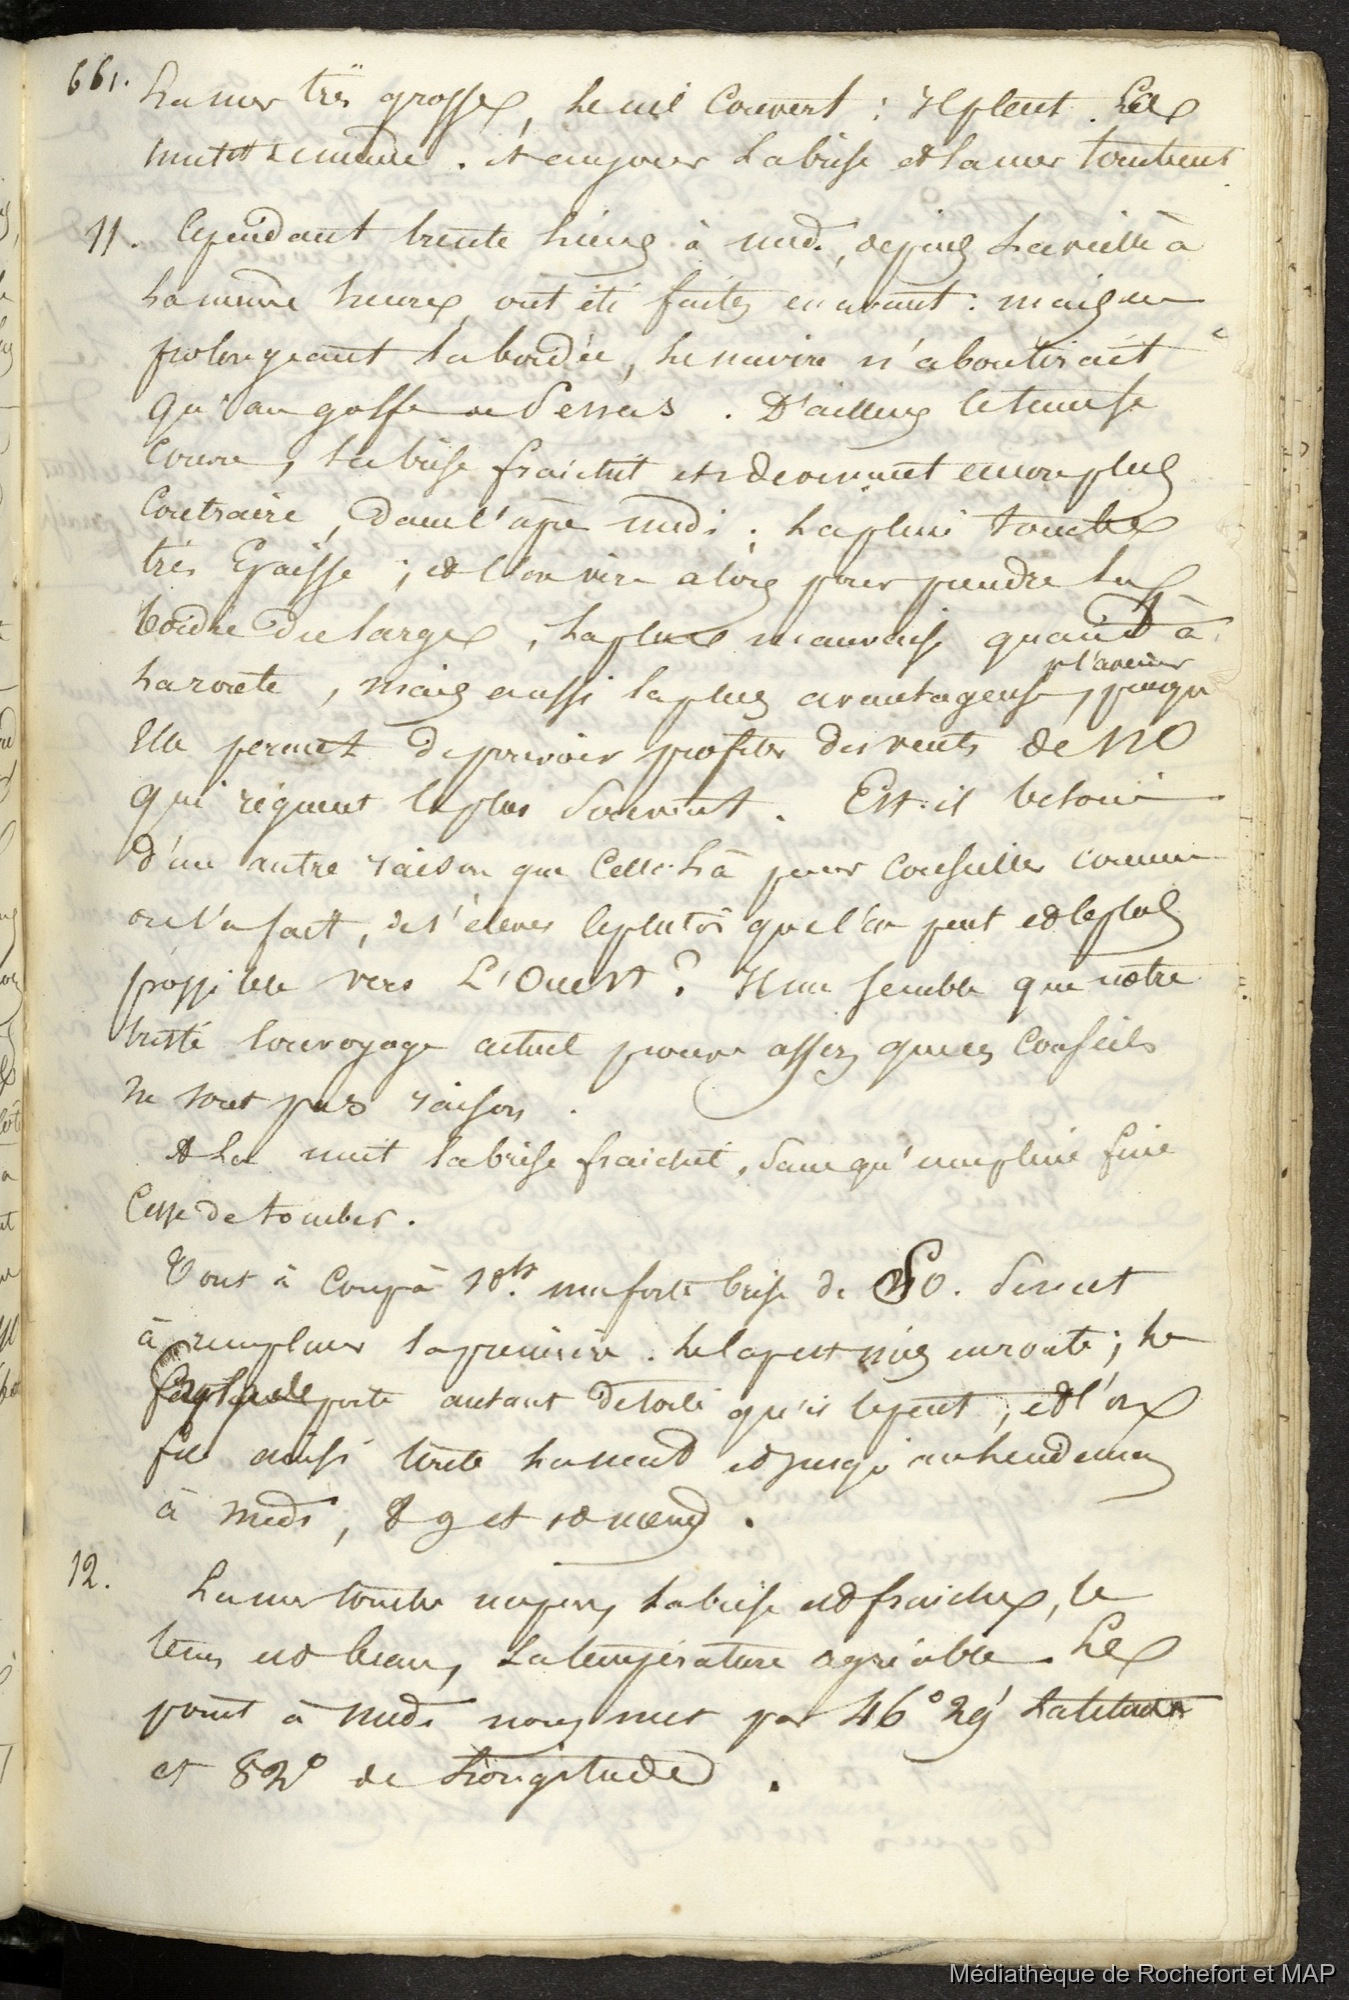 661.
La mer très grosse, le ciel couvert : il pleut. La
nuit de même. Et au jour la brise et la mer tombent
11. Cependant trente lieues à midi, depuis la veille à
la même heure, ont été faites en avant : mais en
prolongeant la bordée, le navire n'aboutirait
qu'au golfe de Penas. D'ailleurs le temps se
couvre, la brise fraichit et devenant encore plus
contraire, dans l'après midi ; la pluie tombe
très épaisse ; et l'on vire alors pour prendre la
bordée du large, la plus mauvaise quant à
la route, mais aussi la plus avantageuse pr l'avenir, puisqu'
elle permet de pouvoir profiter des vents de NO
qui règnent le plus souvent. Est-il besoin
d'une autre raison que celle-là pour conseiller comme
on l'a fait, de s'élever le plutôt que l'on peut et le plus
possible vers L'Ouest ? Il me semble que notre
triste louvoyage actuel prouve assez que ces conseils
ne sont pas raison.
A la nuit la brise fraichit, sans qu'une pluie fine
cesse de tomber.
Tout à coup à 10h. une forte brise de SO. vient
à remplacer la première. Le Cap est mis en route ; le
porte autant de toile qu'il le peut, et l'on
file ainsi toute la nuit et jusqu'au lendemain
à midi, 8 9 et 10 nœuds.
12. La mer tombe un peu, la brise est fraiche, le
tems est beau, la température agréable. Le
point à midi nous met par 46° 29' Latitude
et 82° de Longitude.
Médiathèque de Rochefort et MAP